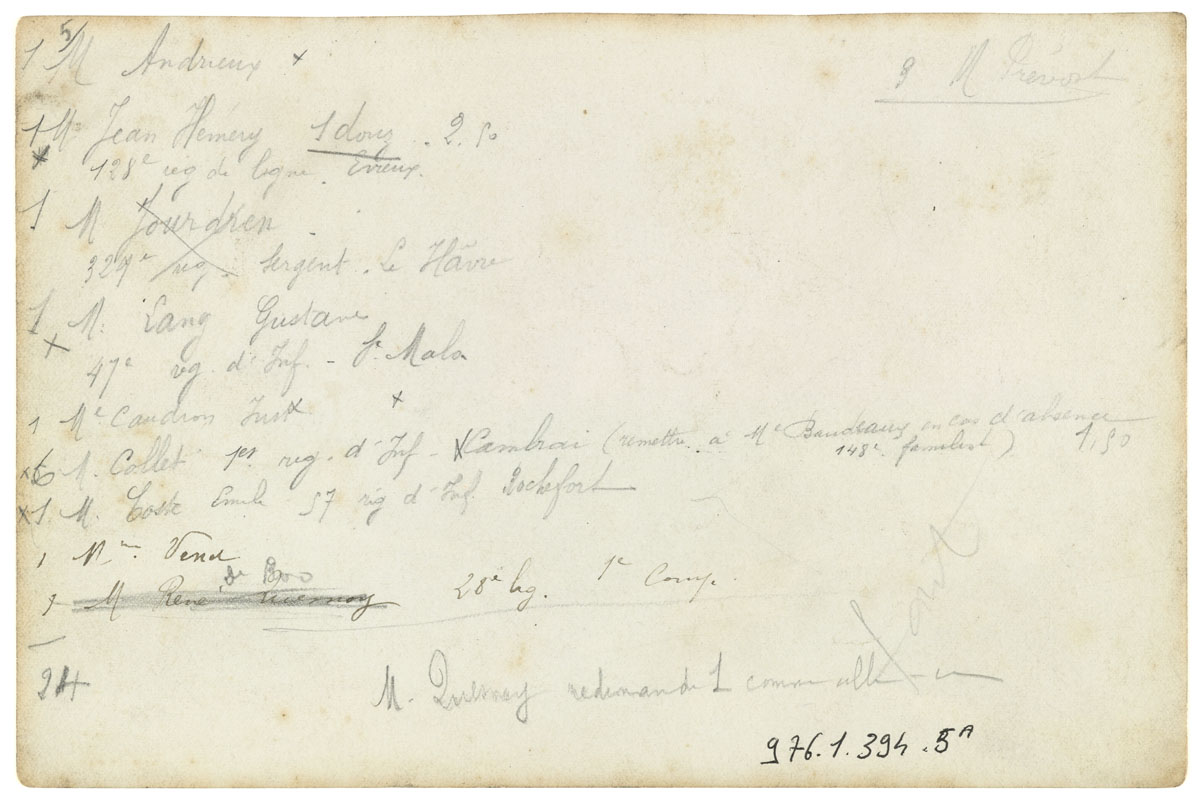 1 5/ M Andrieux x
9 M Prévost
1 M Jean Hémery 1 douz. 2.50
x 128e rég de ligne. Evreux.
1 M Jourdren
329e rég. Sergent. Le Hâvre
1 M. Lang Gustave
x 47e rég. d'Inf. - St Malo
1 Me Caudron Just x
x6 M. Collet 1er rég. d'Inf - Cambrai (remettre à Me Baudeaux en cas d'absence
148e familist) 1,50
x1 M. Coste Emile 57 rég d'Inf. Rochefort
1 Mme Venel
de Boo
M René Quesnoy 28e lég. 1e Comp.
24
M. Quesnoy redemande 1 comme
976.1.394.5A